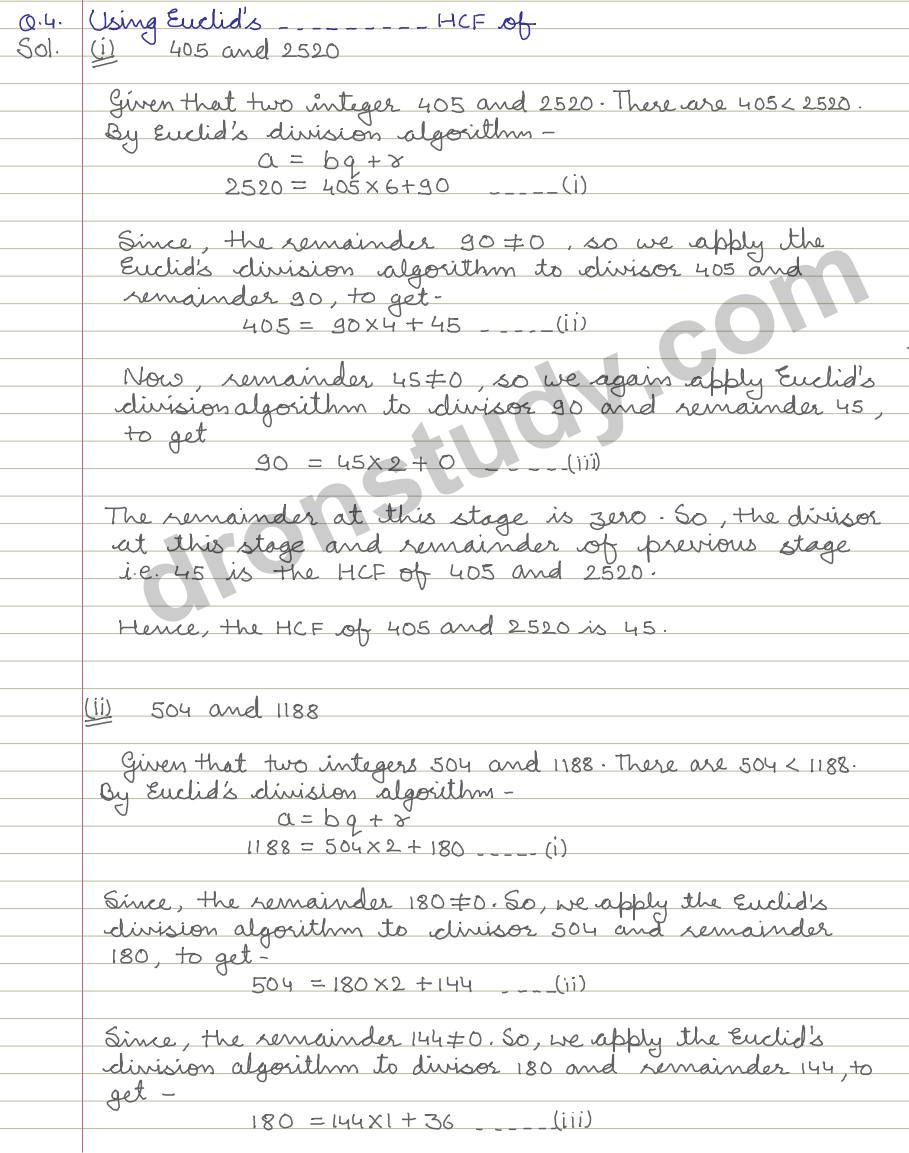 Q.4. Using Euclid's _ _ _ _ _ _ _ _ _ HCF of
Sol. (i) 405 and 2520
Given that two integer 405 and 2520. There are 405 < 2520.
By Euclid's division algorithm -
a = bq + r
2520 = 405 × 6 + 90 _ _ _ _ _ (i)
Since, the remainder 90 ≠ 0, so we apply the
Euclid's division algorithm to divisor 405 and
remainder 90, to get-
405 = 90 × 4 + 45 _ _ _ _ _ (ii)
Now, remainder 45 ≠ 0, so we again apply Euclid's
division algorithm to divisor 90 and remainder 45,
to get
90 = 45 × 2 + 0 _ _ _ _ _ (iii)
The remainder at this stage is zero. So, the divisor
at this stage and remainder of previous stage
i.e. 45 is the HCF of 405 and 2520.
Hence, the HCF of 405 and 2520 is 45.
(ii) 504 and 1188
Given that two integers 504 and 1188. There are 504 < 1188.
By Euclid's division algorithm -
a = bq + r
1188 = 504 × 2 + 180 _ _ _ _ _ (i)
Since, the remainder 180 ≠ 0. So, we apply the Euclid's
division algorithm to divisor 504 and remainder
180, to get -
504 = 180 × 2 + 144 _ _ _ _ (ii)
Since, the remainder 144 ≠ 0. So, we apply the Euclid's
division algorithm to divisor 180 and remainder 144, to
get -
180 = 144 × 1 + 36 _ _ _ _ _ (iii)
dronstudy.com